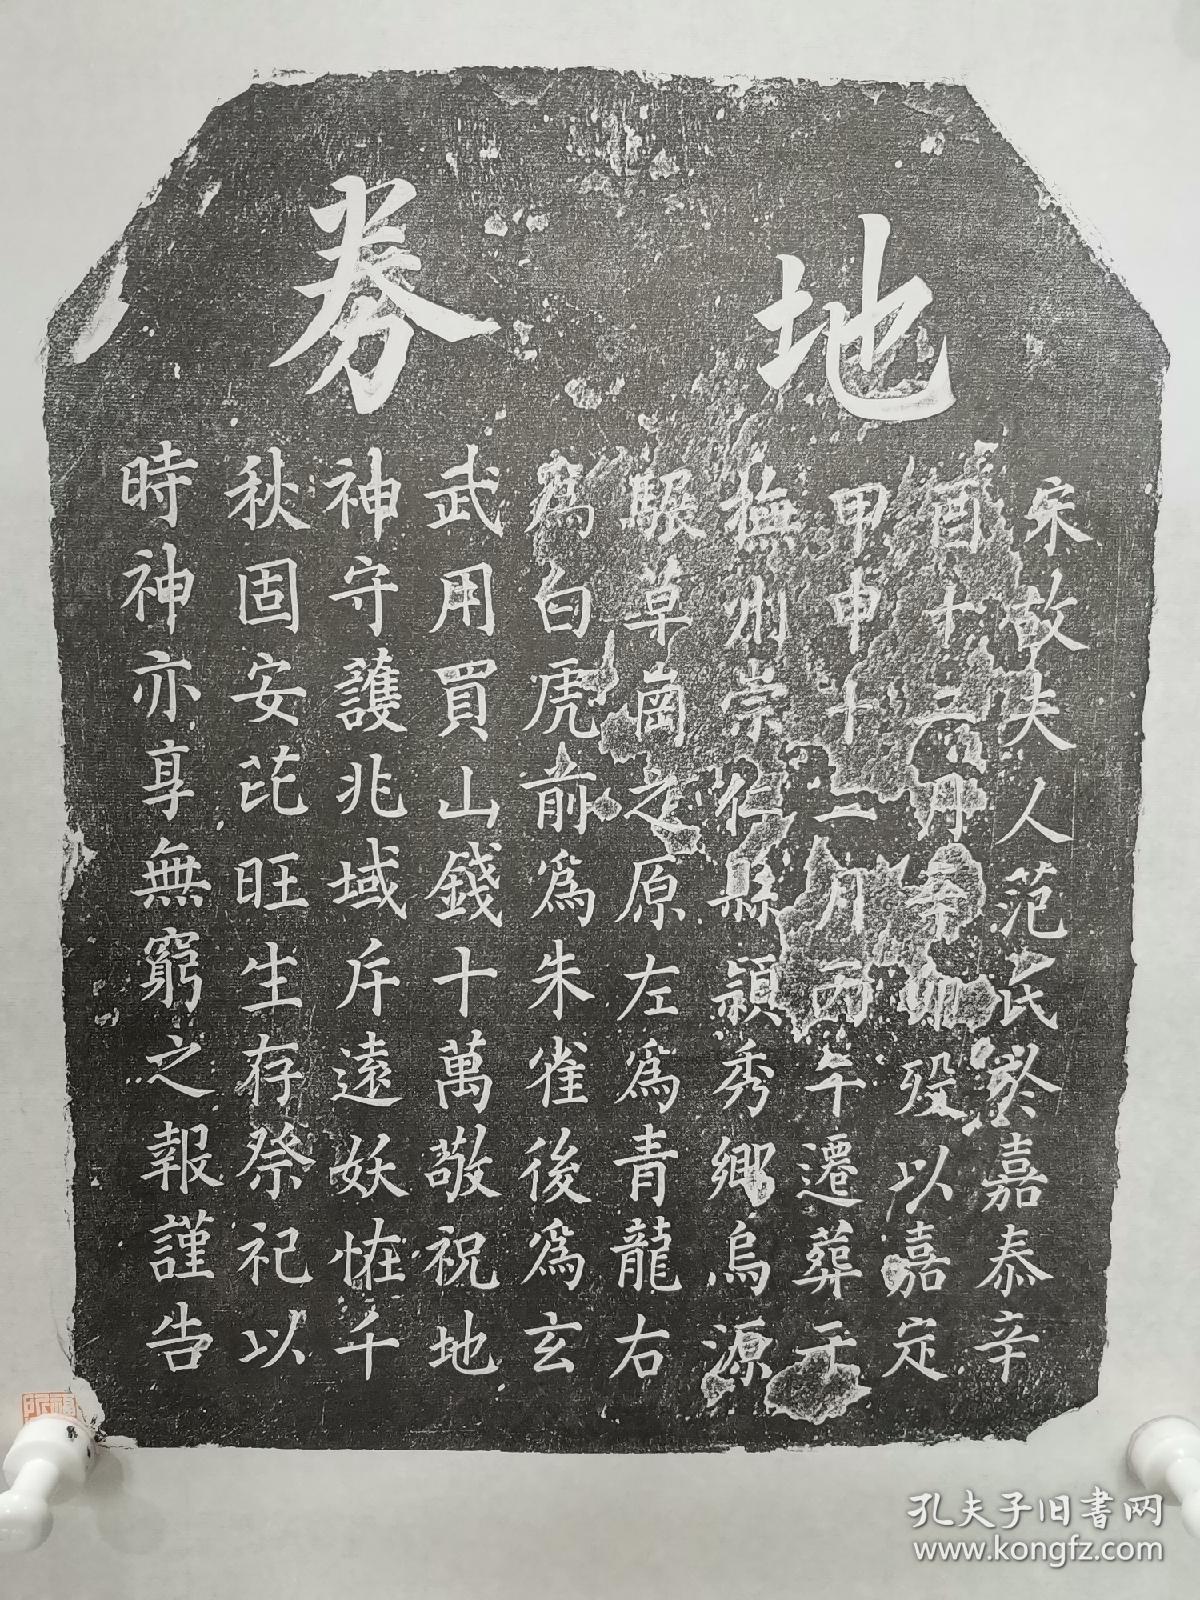 地劵
宋故夫人范氏於嘉泰辛
酉十二月辛卯歿以嘉定
甲申十二月丙午遷葬于
撫州崇仁縣頴秀鄉烏源
草崗之原左爲青龍右
爲白虎前爲朱雀後爲玄
武用買山錢十萬敬祝地
神守護兆域斥遠妖恠千
秋固安芘旺生存祭祀以
時神亦享無窮之報謹告
孔夫子旧書网
www.kongfz.com